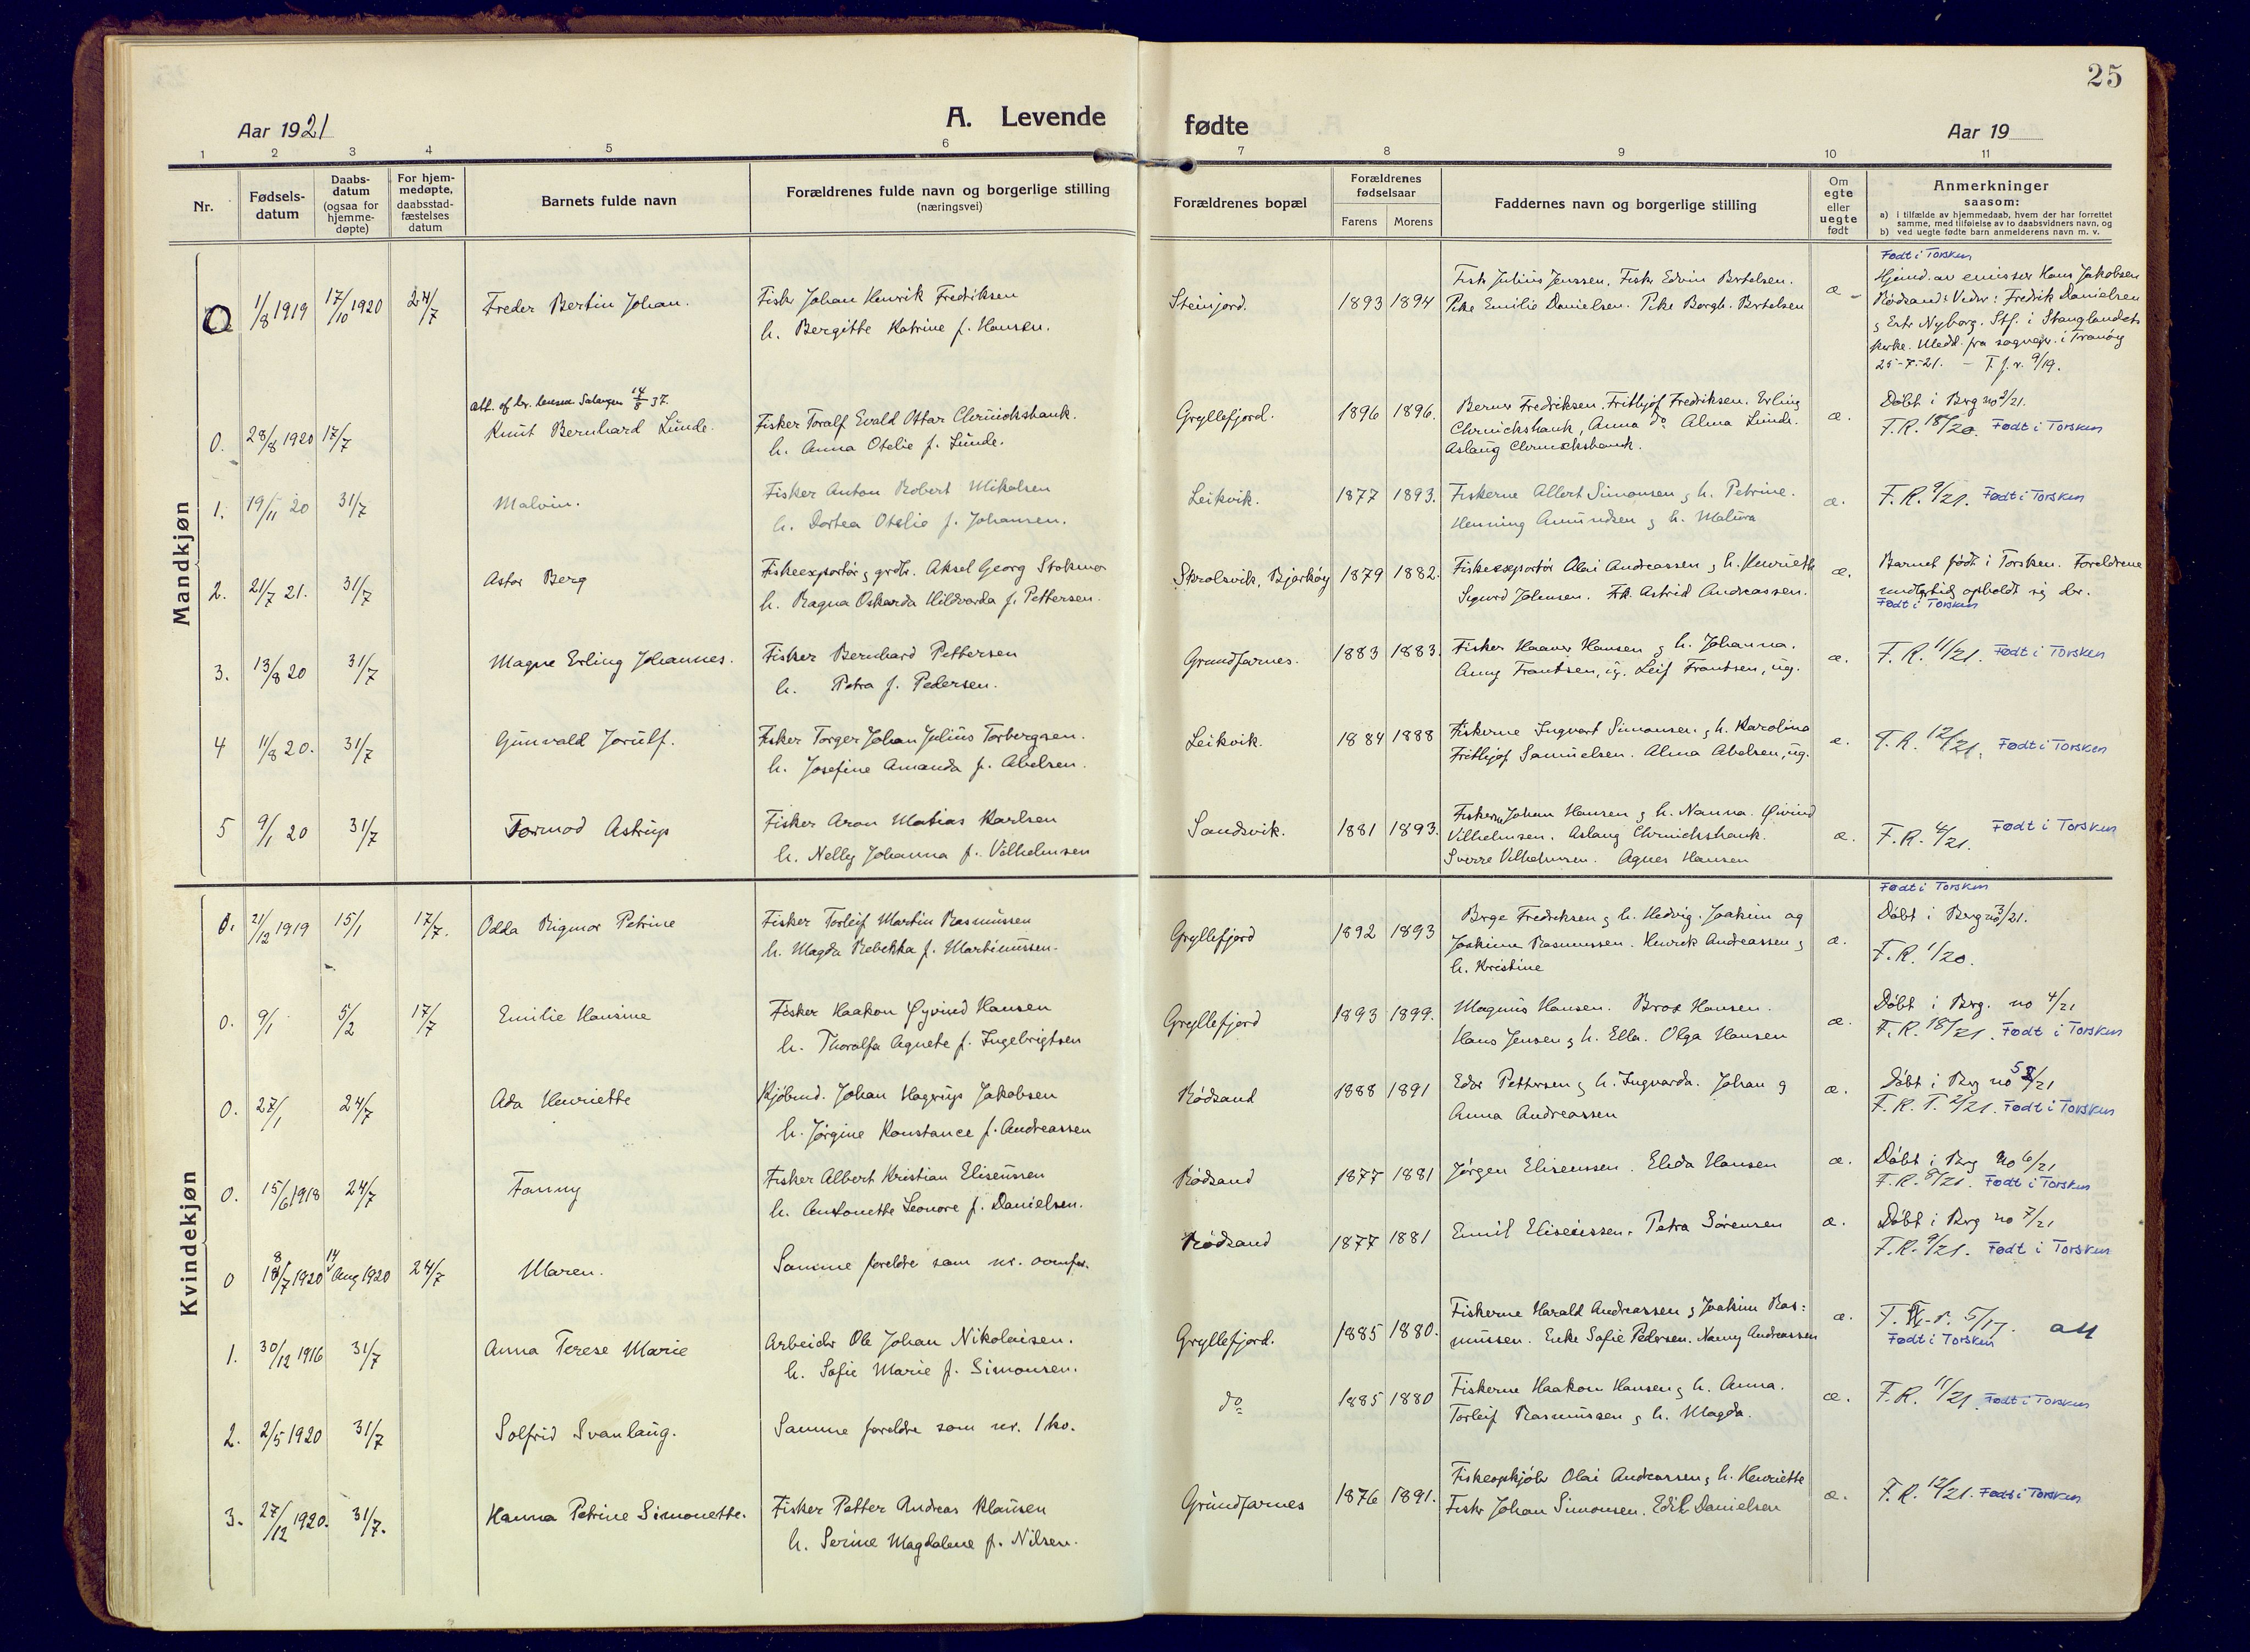 25
Aar 1921
A. Levende
fødte
Aar 19
1 2 3 4 5 6 7 8 9 10 11
Nr.
Fødsels-
datum
Daabs-
datum
(ogsaa for
hjemme-
døpte)
For hjem-
medøpte,
daabsstad-
fæstelses
datum
Barnets fulde navn
Forældrenes fulde navn og borgerlige stilling
(næringsvei)
Forældrenes bopæl
Forældrenes
fødselsaar
Farens Morens
Faddernes navn og borgerlige stilling
Om
egte
eller
uegte
født
Anmerkninger
saasom:
a) i tilfælde av hjemmedaab, hvem der har forrettet
samme, med tilføielse av to daabsvidners navn, og
b) ved uegte fødte barn anmelderens navn m. v.
Mandkjøn
0 1/8 1919 17/10 1920 24/7 Freder Bertin Johan.
Fisker Johan Henrik Fredriksen
h. Bergitte Katrine f. Hansen.
Steinfjord. 1893 1894
Fisk Julius Jenssen. Fisk Edvin Bertelsen.
Pike Emilie Danielsen. Pike Borgh. Bertelsen
æ
Født i Torsken
Hjemd. av emissær Hans Jakobsen
Rødsand: Vidner: Fredrik Danielsen
Nyborg. Stf. i Stanglandets
kirke. Medd. fra sognepr. i Tranøy
25-7-21. - T. f. r. 9/19.
0. 28/8 1920 17/7
14/8 37.
Knut Bernhard Lunde.
Fisker Toralf Evald Ottar Chruickshank.
h. Anna Otelie f. Lunde.
Gryllefjord. 1896 1896.
Berner Fredriksen. Frithjof Fredriksen. Erling
Chruickshank, Anna do Alma Lunde.
Aslaug Chruickshank.
æ.
Døbt i Berg no 2/21.
F.R. 18/20. Født i Torsken
1. 19/11 20 31/7 Malvin.
Fisker Anton Robert Mikalsen
h. Dortea Otelie f. Johansen.
Leikvik. 1877 1893.
Fiskerne Albert Simonsen g h. Petrine.
Henning Amundsen g h. Malura
æ.
F.R. 9/21. Født i Torsken
2. 21/7 21. 31/7 Astor Berg
Fiskeexportør g grdbr. Aksel Georg Stokmo
h. Ragna Oskarda Hildvarda f. Pettersen.
Skrolsvik, Bjarkøy 1879 1882.
Fiskeexportør Olai Andreassen g h. Henriette
Sigurd Johnsen. Frk. Astrid Andreassen.
æ.
Barnet født i Torsken. Foreldrene
midlertidig opholdt sig der.
Født i Torsken
3. 13/8 20 31/7 Magne Erling Johannes.
Fisker Bernhard Pettersen
h. Petra f. Pedersen.
Grundfarnes. 1883 1883.
Fisker Haavar Hansen g h. Johanna.
Anny Frantsen, ug. Leif Frantsen, ug.
æ.
F.R. 11/21. Født i Torsken
4 11/8 20. 31/7 Gunvald Jorulf.
Fisker Torger Johan Julius Torbergsen.
h. Josefine Amanda f. Abelsen.
Leikvik. 1884 1888
Fiskerne Ingvart Simonsen g h. Karolina
Frithjof Samuelsen. Alma Abelsen, ug.
æ.
F.R. 12/21. Født i Torsken
5 9/1 20 31/7 Tormod Astrup
Fisker Aron Matias Karlsen
h. Nelly Johanna f. Vilhelmsen
Sandsvik. 1881 1893.
Fiskerne Johan Hansen g h. Nanna. Øivind
Vilhelmsen. Aslaug Chruickshank.
Sverre Vilhelmsen. Agnes Hansen
æ.
F.R. 4/21. Født i Torsken
Kvindekjøn
0. 21/12 1919 15/1 17/7. Odda Rigmor Petrine
Fisker Torleif Martin Rasmussen
h. Magda Rebekka f. Martinussen.
Gryllefjord 1892 1893
Birge Fredriksen g h. Hedvig. Joakim og
Joakime Rasmussen. Henrik Andreassen g
h. Kristine
æ.
Født i Torsken
Døbt i Berg no 3/21.
F.R. 1/20.
0. 9/1 5/2 17/7 Emilie Hansine
Fisker Haakon Øyvind Hansen
h. Thoralfa Agnete f. Ingebrigtsen
Gryllefjord 1893 1899.
Magnus Hansen. Hansen.
Hans Jensen g h. Ella. Olga Hansen
æ.
Døbt i Berg. no 4/21
F.R. 18/21. Født i Torsken
0. 27/1 24/7 Ada Henriette
Kjøbmd. Johan Hagerup Jakobsen
h. Jørgine Konstance f. Andreassen
Rødsand 1888 1891
Edor Pettersen g h. Ingvarda. Johan g
Anna Andreassen
æ.
Døbt i Berg no 5/21
F.R. T. 2/21. Født i Torsken
0. 15/6 1918 24/7 Fanny
Fisker Albert Kristian Eliseussen
h. Antonette Leonore f. Danielsen.
Rødsand 1877 1881
Jørgen Eliseussen. Elida Hansen
æ.
Døbt i Berg no 6/21
F.R. 8/21. Født i Torsken
0 8/7 1920 14 Aug 1920 24/7 Maren.
Samme foreldre som nr. ovenfor.
Rødsand 1877 1881
Emil Eliseussen. Petra Sørensen
æ.
Døbt i Berg no 7/21
F.R. 9/21. Født i Torsken
1. 30/12 1916 31/7 Anna Terese Marie
Arbeider Ole Johan Nikolaisen.
h. Sofie Marie f. Simonsen.
Gryllefjord. 1885 1880.
Fiskerne Harald Andreassen g Joakim Ras:
mussen. Enke Sofie Pedersen. Nanny Andreassen
æ.
5/17. att
Født i Torsken
2. 2/5 1920 31/7 Solfrid Svanlaug.
Samme foreldre som nr. 1 ko.
do 1885 1880
Fiskerne Haakon Hansen g h. Anna.
Torleif Rasmussen g h. Magda.
æ.
F.R. 11/21 Født i Torsken
3. 27/12 1920. 31/7. Hanna Petrine Simonette.
Fisker Petter Andreas Klausen
h. Serine Magdalene f. Nilsen.
Grundfarnes 1876 1891.
Fiskeopkjøb. Olai Andreassen g h. Henriette
Fisk Johan Simonsen. Edil Danielsen
æ.
F.R. 12/21. Født i Torsken